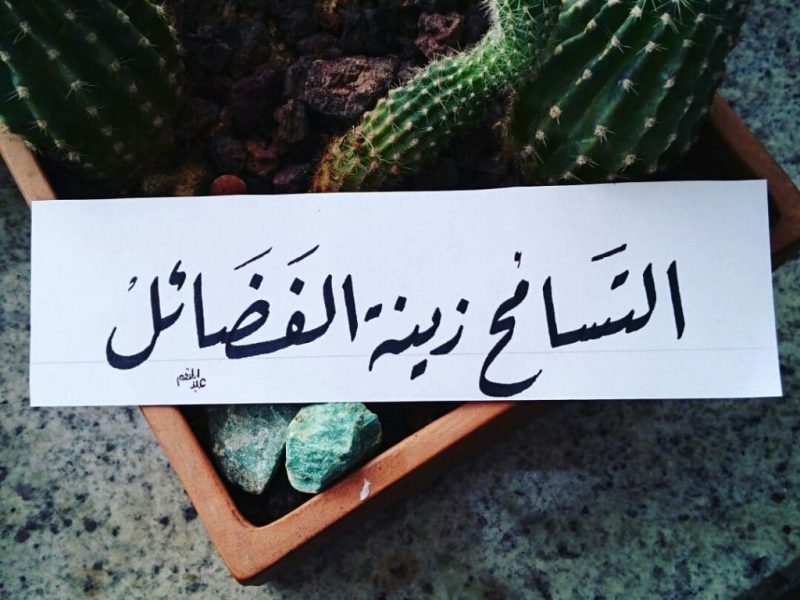 التسامُح زينة الفَضَائلُ
عبد المنعم